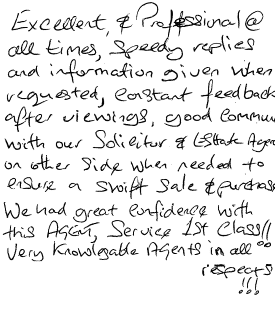 Excellent, & Professional @
all times, Speedy replies
and information given when
requested, constant feedback
after viewings, good commun
with our Solicitor & Estate Agen
on other side when needed to
ensure a swift Sale & purchase
We had great confidence with
this Agent, Service 1st Class!!
Very Knowlegable Agents in all
respects
!!!